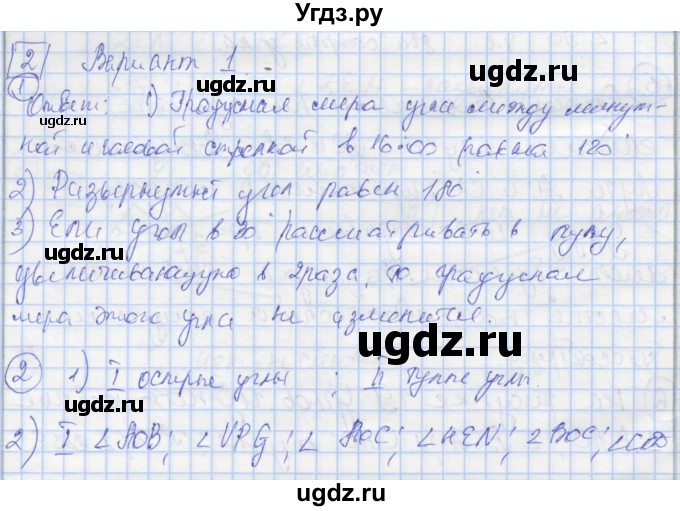 Угдз.ру
2 Вариант 1
1
Ответ: 1) Градусная мера угла между минут-
ной и часовой стрелкой в 16:00 равна 120°
угдз.ру
2) Развернутый угол равен 180°
3) Если угол в 30° рассматривать в лупу,
увеличивающую в 2 раза, то градусная
мера этого угла не изменится.
угдз.ру
2 1) I острые углы ; II Тупые углы.
2) I ∠AOB; ∠VPG; ∠ AOC; ∠HEN; ∠BOC; ∠COD
угдз.ру